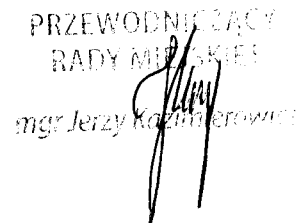 PRZEWODNICZĄCY
RADY MIEJSKIEJ
mgr Jerzy Kazimierowicz